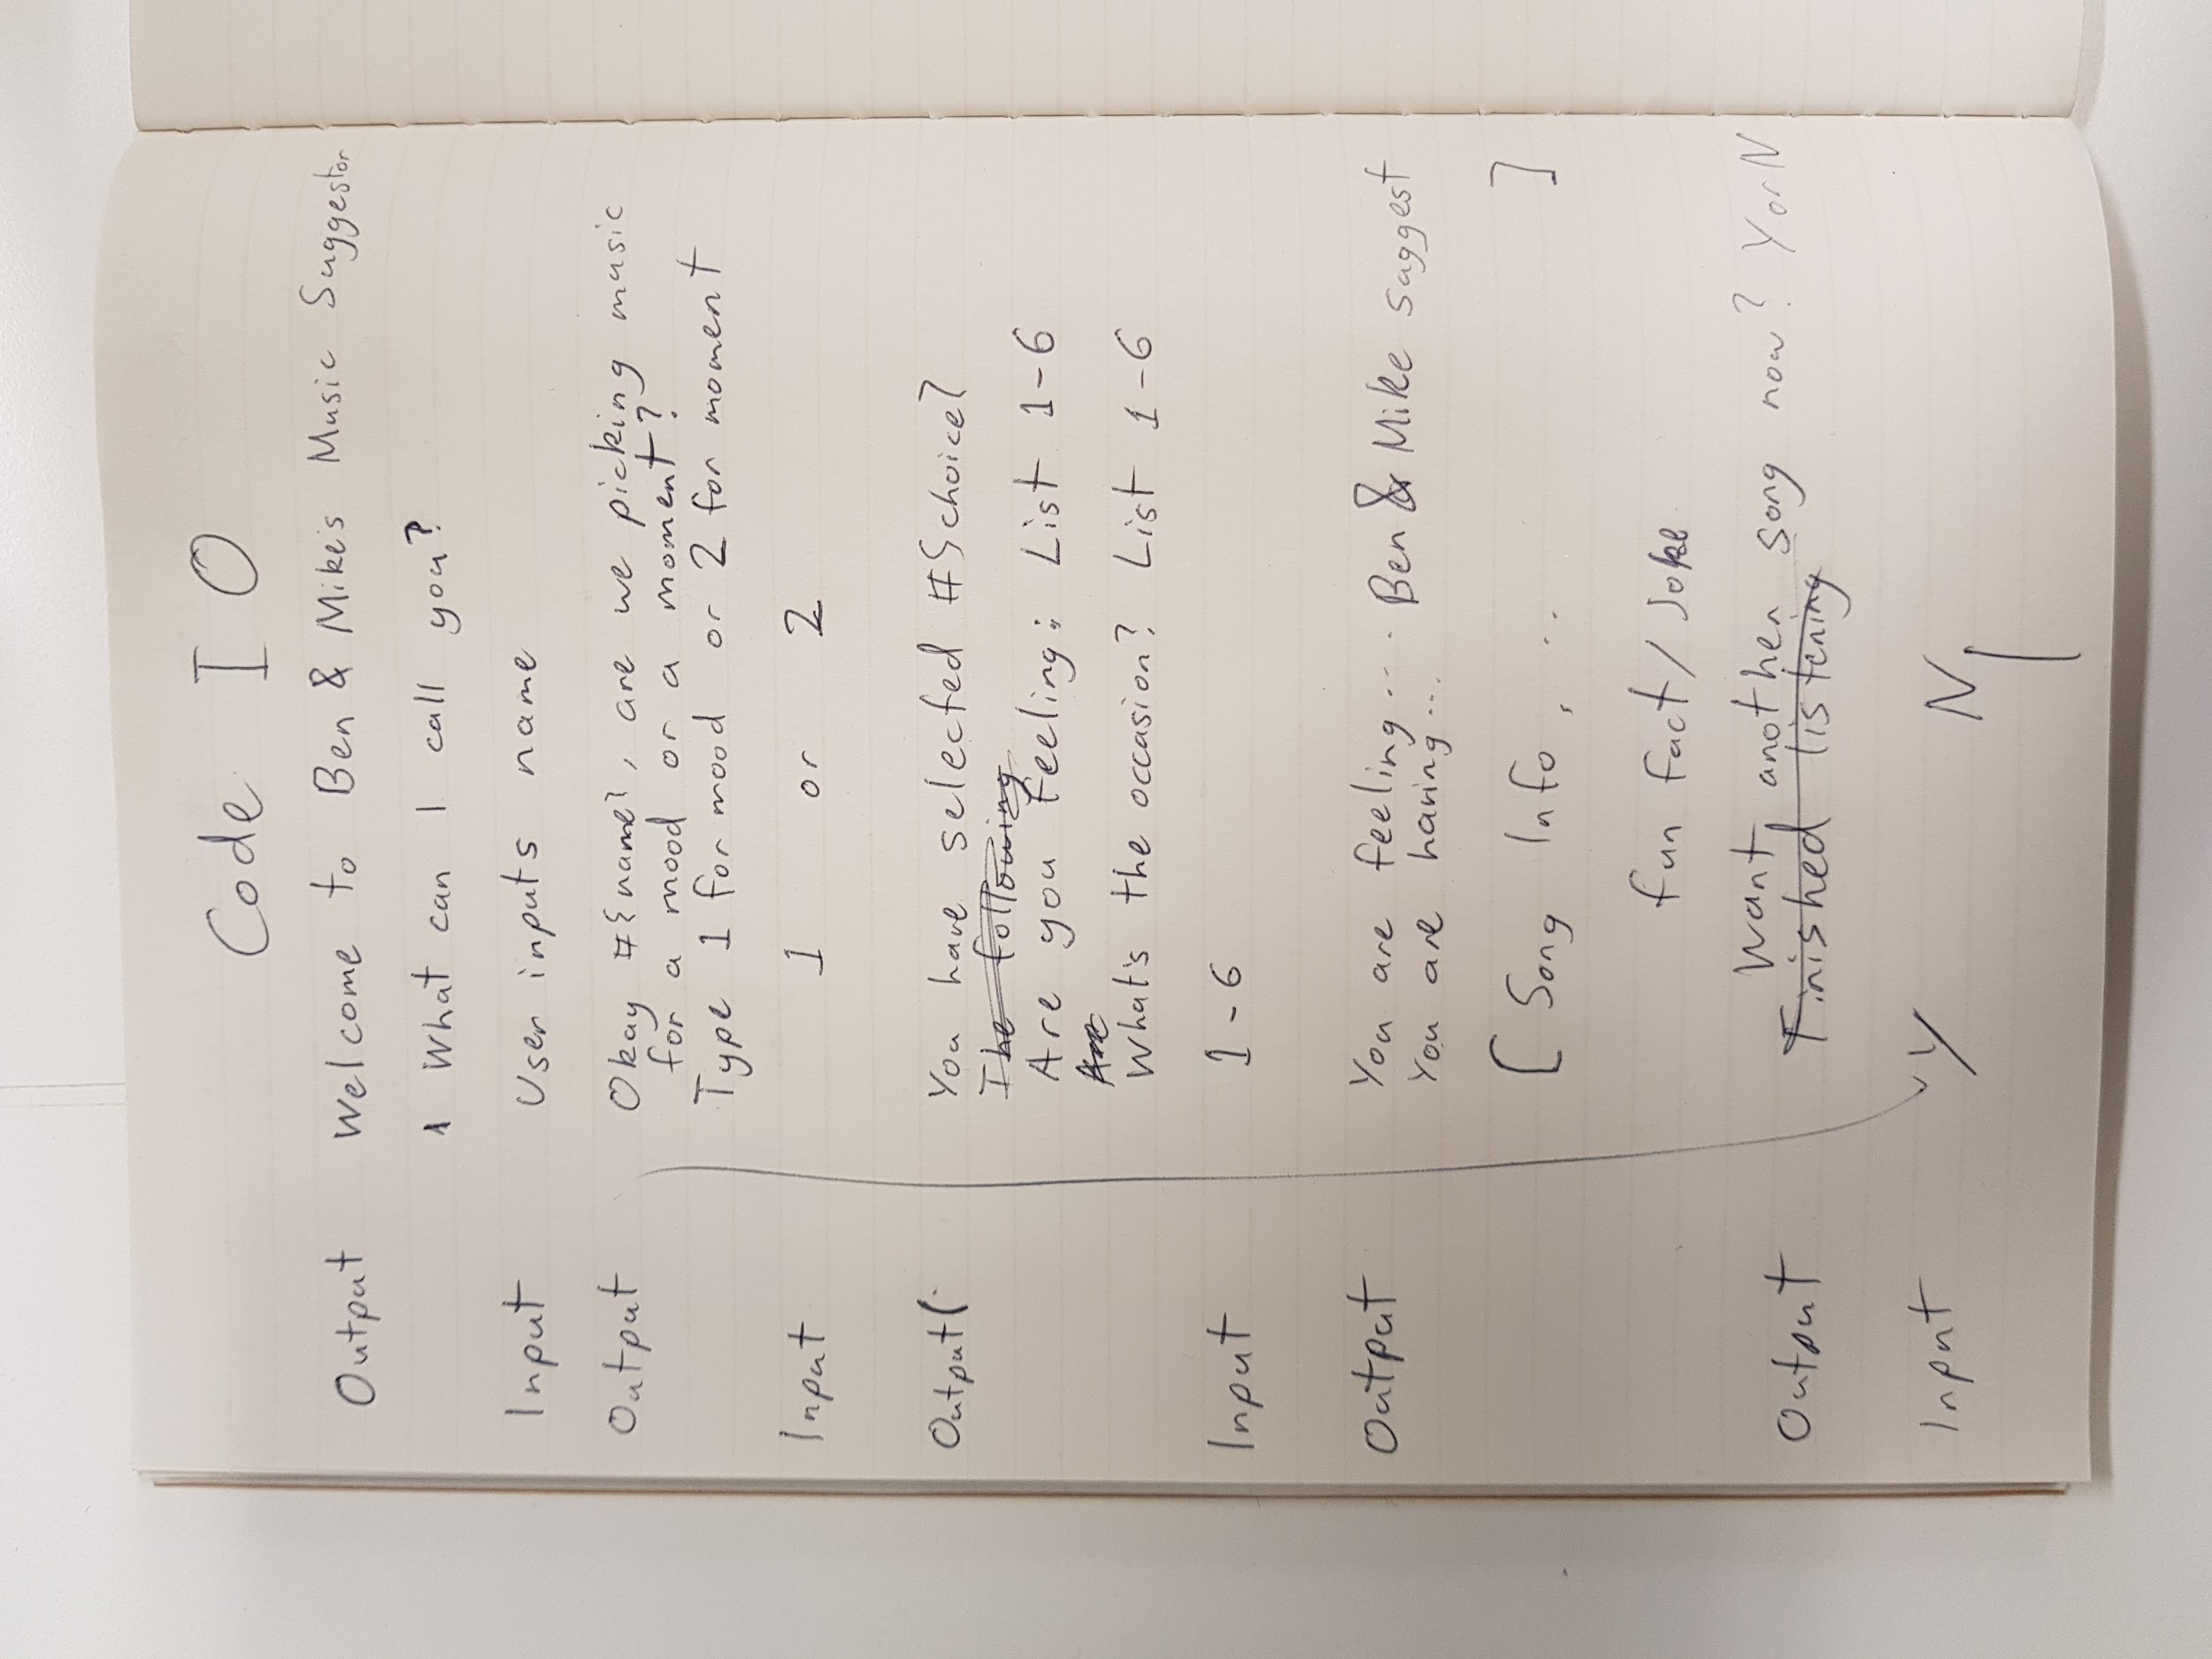 Code I O
Output Welcome to Ben & Mike's Music Suggestor
What can I call you?
Input User inputs name
Output Okay #{name}, are we picking music
for a mood or a moment?
Type 1 for mood or 2 for moment
Input 1 or 2
Output You have selected #{choice}
The following
Are you feeling: List 1-6
Are
What's the occasion? List 1-6
Input 1-6
Output You are feeling... Ben & Mike suggest
You are having...
[Song Info ... ]
fun fact/Joke
Want another song now? Y or N
Output Finished listening
Input Y N